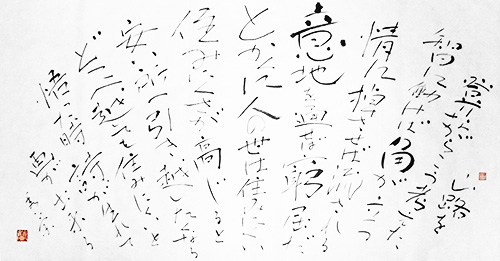 山路を
登りながらこう考えた
智に働けば角が立つ
情に棹させば流される
意地を通せば窮屈だ
とかくに人の世は住みにくい
住みにくさが高じると
安い所へ引き越したくなる
どこへ越しても住みにくいと
悟った時詩が生れて
画が出来る